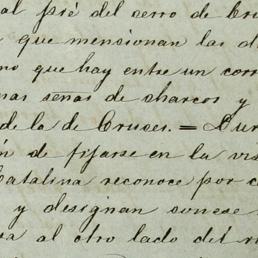 al pié del serro de Cru
que mensionan las d
no que hay entre un corr
nas señas de charcos y
de la de Cruses. = Lur
ón de fijarse en la vis
Catalina reconoce por c
y designan
sa al otro lado del r